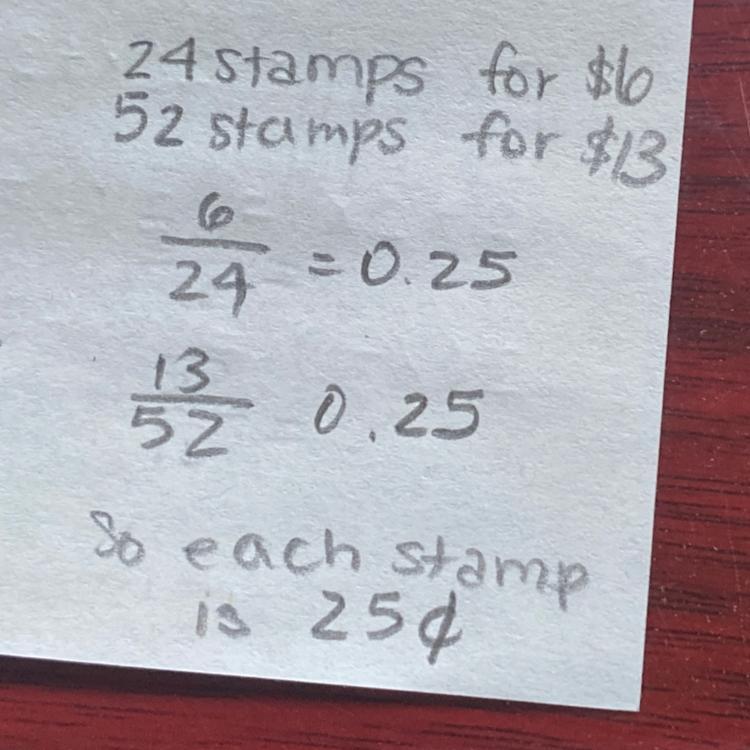 24 stamps for $6
52 stamps for $13
6
24 = 0.25
13
52 0.25
So each stamp
is 25¢